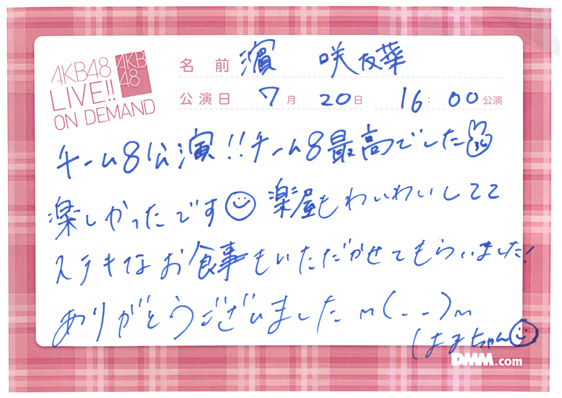 AKB48
LIVE!!
ON DEMAND
AKB
48
名前 濵 咲友菜
公演日 7月 20日 16:00公演
チーム8公演!!チーム8最高でした
楽しかったです 楽屋もわいわいしてて
ステキなお食事もいただかせてもらいました!
ありがとうございました m(_ _)m
はまちゃん
DMM.com